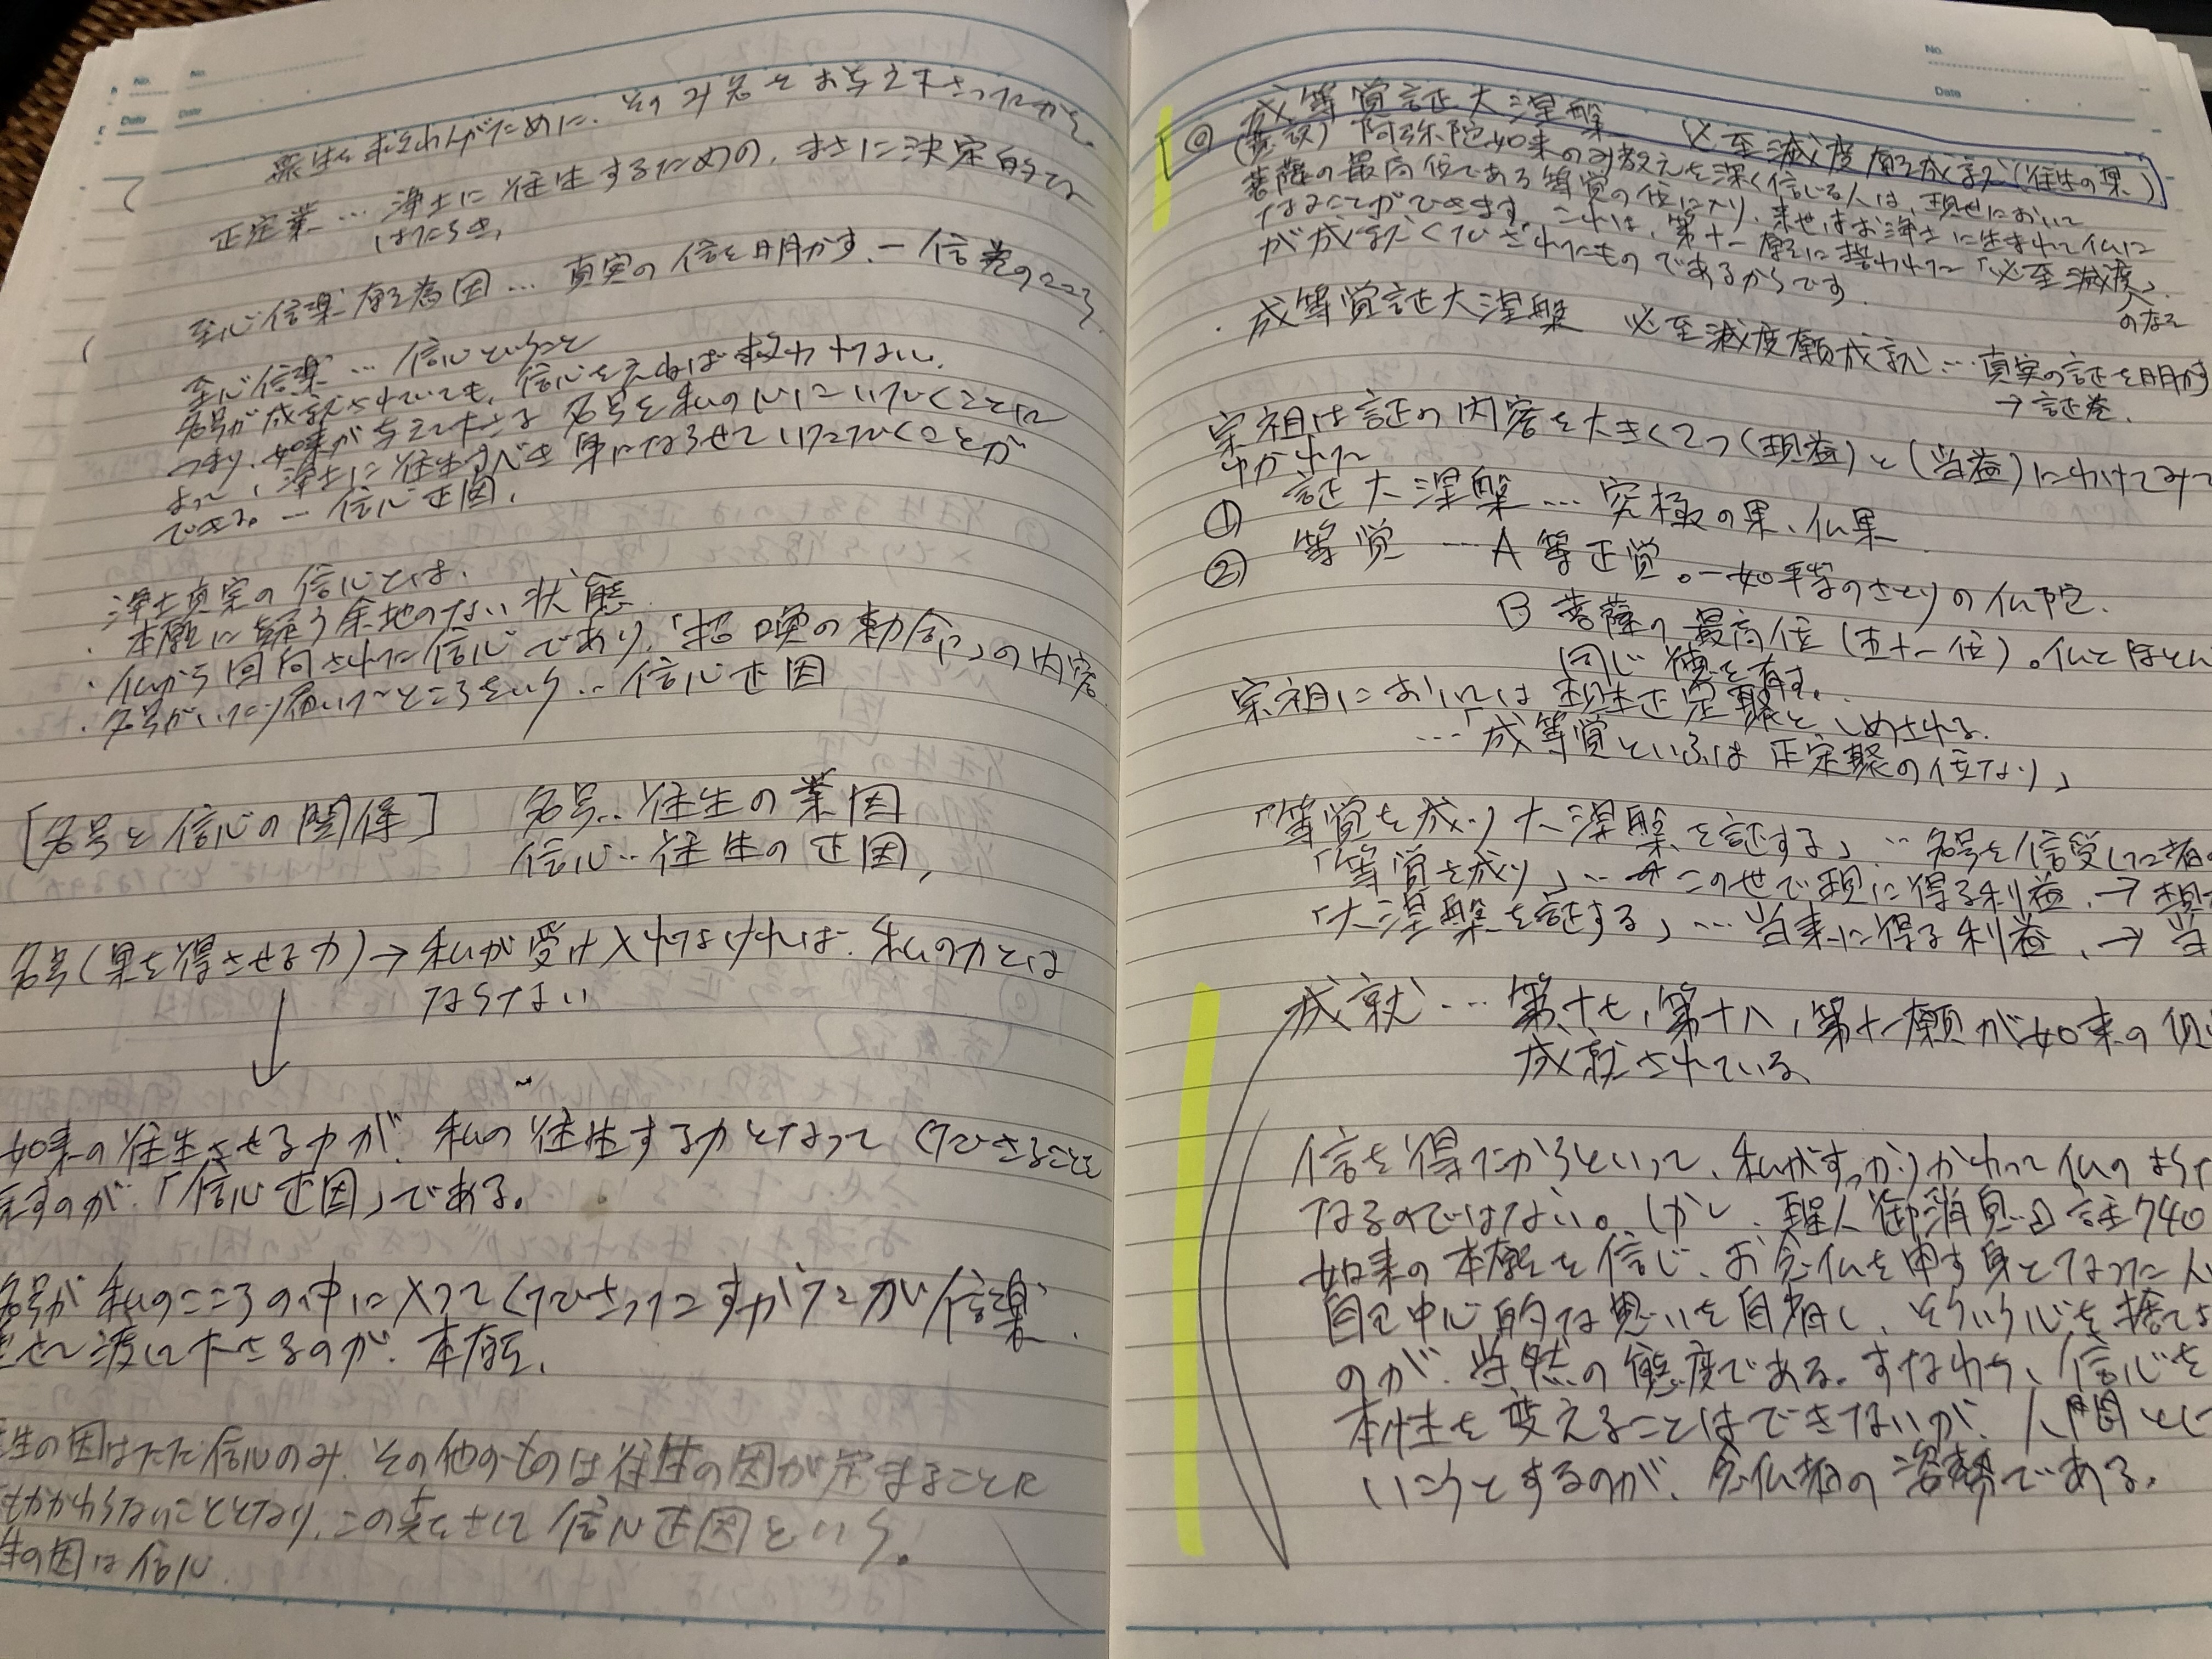 No.
Date
衆生を救わんがために、そのみ名をお与え下さったから。
正定業…浄土に往生するための、まさに決定的な
はたらき、
至心信楽願為因…真実の信を明かす、―信巻のこころ
至心信楽…信心ということ
名号が成就されていても、信心をえねば救われない。
つまり、如来が与えて下さる名号を私の心にいただくことに
よって、浄土に往生すべき身にならせていただくことが
できる。…信心正因、
浄土真実の信心とは、
・本願に疑う余地のない状態
・仏から回向された信心であり、「招喚の勅命」の内容
・名号がいたり届いたところをいう…信心正因
[名号と信心の関係] 名号…往生の業因
信心…往生の正因、
名号(果を得させる力)→私が受け入れなければ、私の力とは
ならない
↓
如来の往生させる力が、私の往生する力となってくださることを
示すのが、「信心正因」である。
名号が私のこころの中に入ってくださったすがたが信楽、
せて渡して下さるのが、本願、
生の因はただ信心のみ、その他のものは往生の因が定まることに
もかかわらないこととなり、この点をさして信心正因という。
生の因は信心
No.
Date
◎ 成等覚証大涅槃 必至滅度願成就(往生の果)
(意訳) 阿弥陀如来のみ教えを深く信じる人は、現世において
菩薩の最高位である等覚の位に入り、来世はお浄土に生まれて仏に
なることができます。これは、第十一願に誓われた「必至滅度」
の願
が成就くだされたものであるからです。
・成等覚証大涅槃 必至滅度願成就…真実の証を明かす
→証巻、
宗祖は証の内容を大きく二つ(現益)と(当益)にわけてみて
いかれた
① 証大涅槃…究極の果、仏果
② 等覚…A 等正覚。一如平等のさとりの仏陀、
B 菩薩の最高位(五十一位)。仏とほとん
同じ徳を有す、
宗祖においては現生正定聚としめされる、
…「成等覚といふは正定聚の位なり」
「等覚を成り大涅槃を証する」…名号を信受した者の
「等覚を成り」…この世で現に得る利益、→現
「大涅槃を証する」…当来に得る利益、→当
成就…第十七、第十八、第十一願が如来の
成就されている、
信を得たからといって、私がすっかりかわって仏のように
なるのではない。しかし、親鸞聖人御消息 註740
如来の本願を信じ、お念仏を申す身となった人
自己中心的な思いを自省し、そういう心を捨てよ
のが、当然の態度である。すなわち、信心を
本性を変えることはできないが、人間とし
いこうとするのが、念仏者の姿勢である。